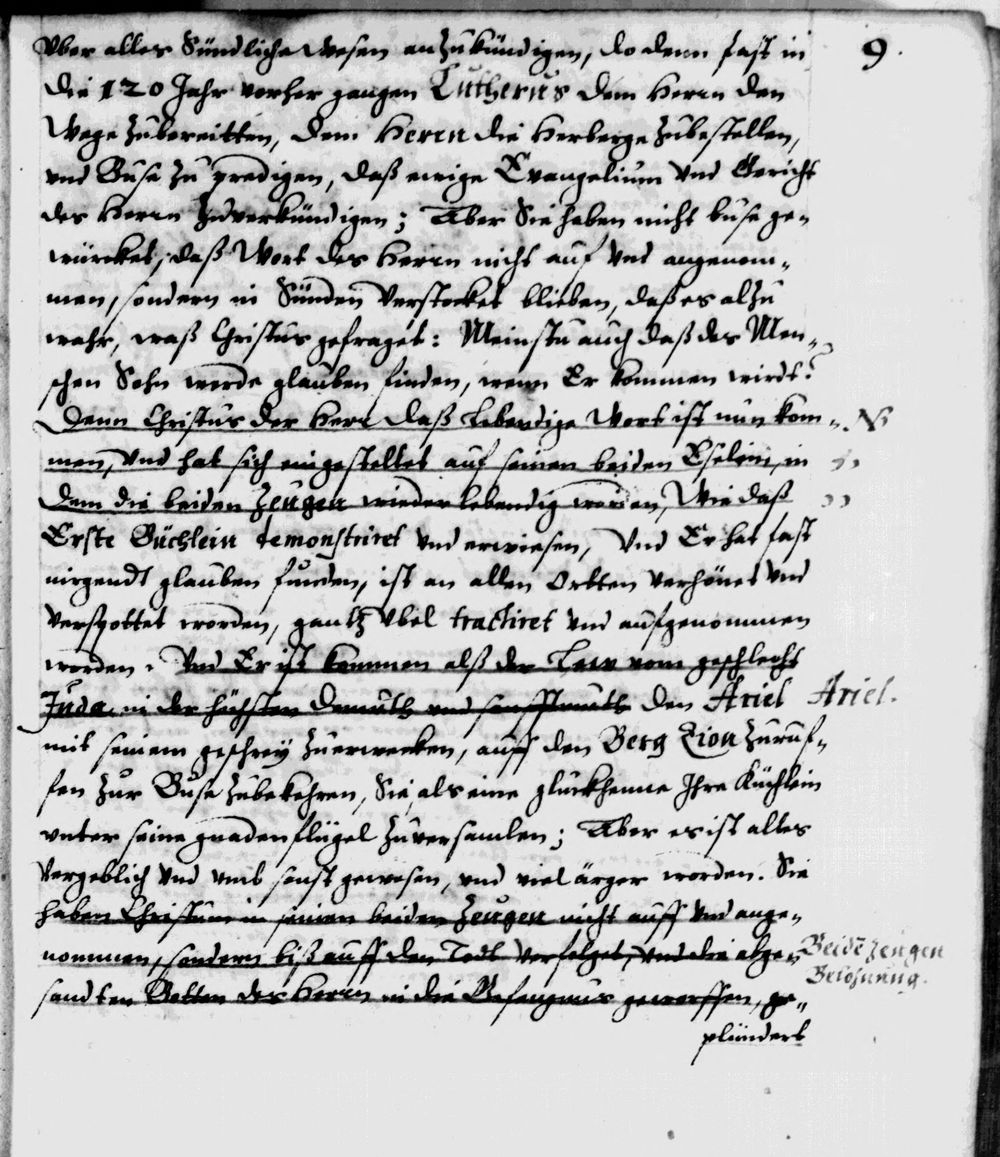 9.
Vber alles Sündliche wesen anzukündigen, do denn fast in
die 120 Jahr vorher gangen Lutherus dem Herrn den
Wege Zubereitten, dem Herrn die Herberge Zubestellen,
vnd Buse Zu predigen, daß ewige Evangelium vnd Gericht
des Herrn Zuverkündigen; Aber Sie haben nicht buse ge-
würcket, daß Wort des Herrn nicht auf vnd angenom-
men, sondern in Sünden Verstocket blieben, daß es alzu
wahr, waß Christus gefraget: Meinstu auch daß des Men-
schen Sohn werde glauben finden, wenn Er kommen wirdt?
Denn Christus der Herr daß Lebendige Wort ist nun kom-
men, vnd hat sich eingestellet auf seinen beiden Eselein, in
dem die beiden Zeugen wieder lebendig worden, Wie daß
Erste Büchlein demonstriret vnd erwiesen, Vnd Er hat fast
nirgendt glauben funden, ist an allen Ortten verhönet vnd
verspottet worden, gantz vbel tractiret vnd aufgenommen
worden. Vnd Er ist kommen alß der Lew vom geschlecht
Juda, in der höchsten demuth vnd sanfftmuth den Ariel
Ariel.
mit seinem geschrey Zuerwecken, auff den Berg Zion Zuruf-
fen Zur Buse Zubekehren, Sie als eine gluckhenne Ihre Küchlein
vnter seine gnaden flügel Zuversamlen; Aber es ist alles
Vergeblich vnd vmb sonst gewesen, vnd viel ärger worden. Sie
haben Christum in seinen beiden Zeugen nicht auff vnd ange-
nommen, sondern biß auff den Todt verfolget, vnd die abge-
Beide Zeugen
sandten Botten des Herrn in die Gefengnus geworffen, ge-
Belohnung.
plündert